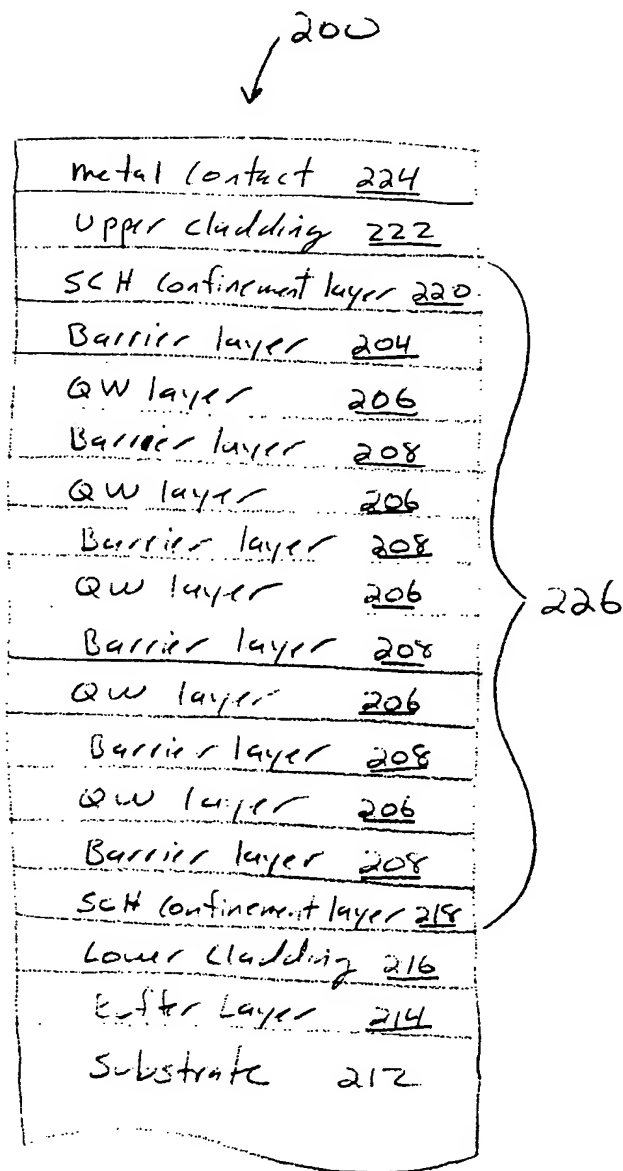 200
metal contact 224
Upper cladding 222
SCH confinement layer 220
Barrier layer 204
QW layer 206
Barrier layer 208
QW layer 206
Barrier layer 208
QW layer 206
Barrier layer 208
QW layer 206
Barrier layer 208
QW layer 206
Barrier layer 208
SCH confinement layer 218
Lower cladding 216
Buffer Layer 214
Substrate 212
226